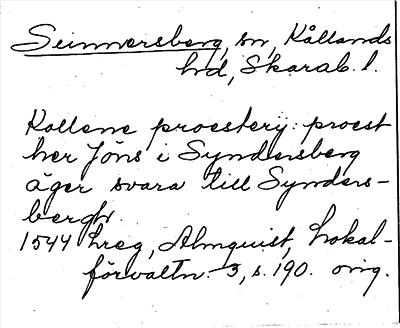 Sunnersberg, sn, Kållands
hd, Skarab. l.
Kollene proestery: proest
her Jöns i Syndersberg
äger svara till Synders-
bergh
1544 hreg, Almquist, Lokal-
förvaltn. 3, s. 190. orig.